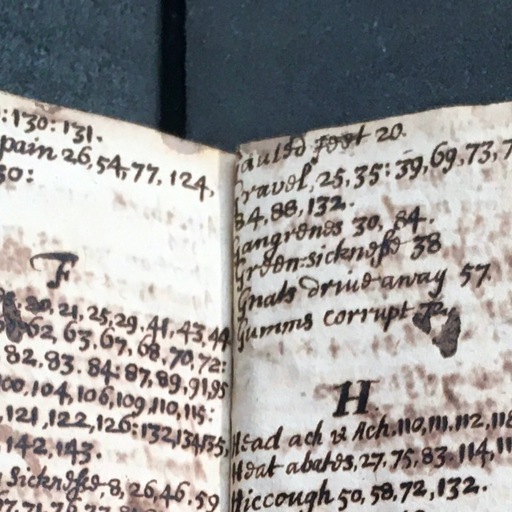 :130:131.
pain 26,54,77,124,
30:
F
20,21,25,29,41,43,44
62,63,67,68,70,72:
82,83.84:87,89,91,95
100.104,106,109,110,115:
,121,122,126:132,134,135,
,142,143.
Sicknesse,8,26,46.59
feet 20.
Gravel,25,35:39,69,73,7
84,88,132.
Gangrenes 30,84.
Green-sicknesse 38
Gnats drive away 57.
Gumms corrupt
H
Head ach & Ach.110,111.112,118
Heat abates,27,75,83.114,11
Hiccough 50,58,72,132.